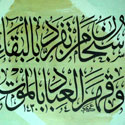 سبحان من تفرد بالبقاء
وقهر العباد بالموت